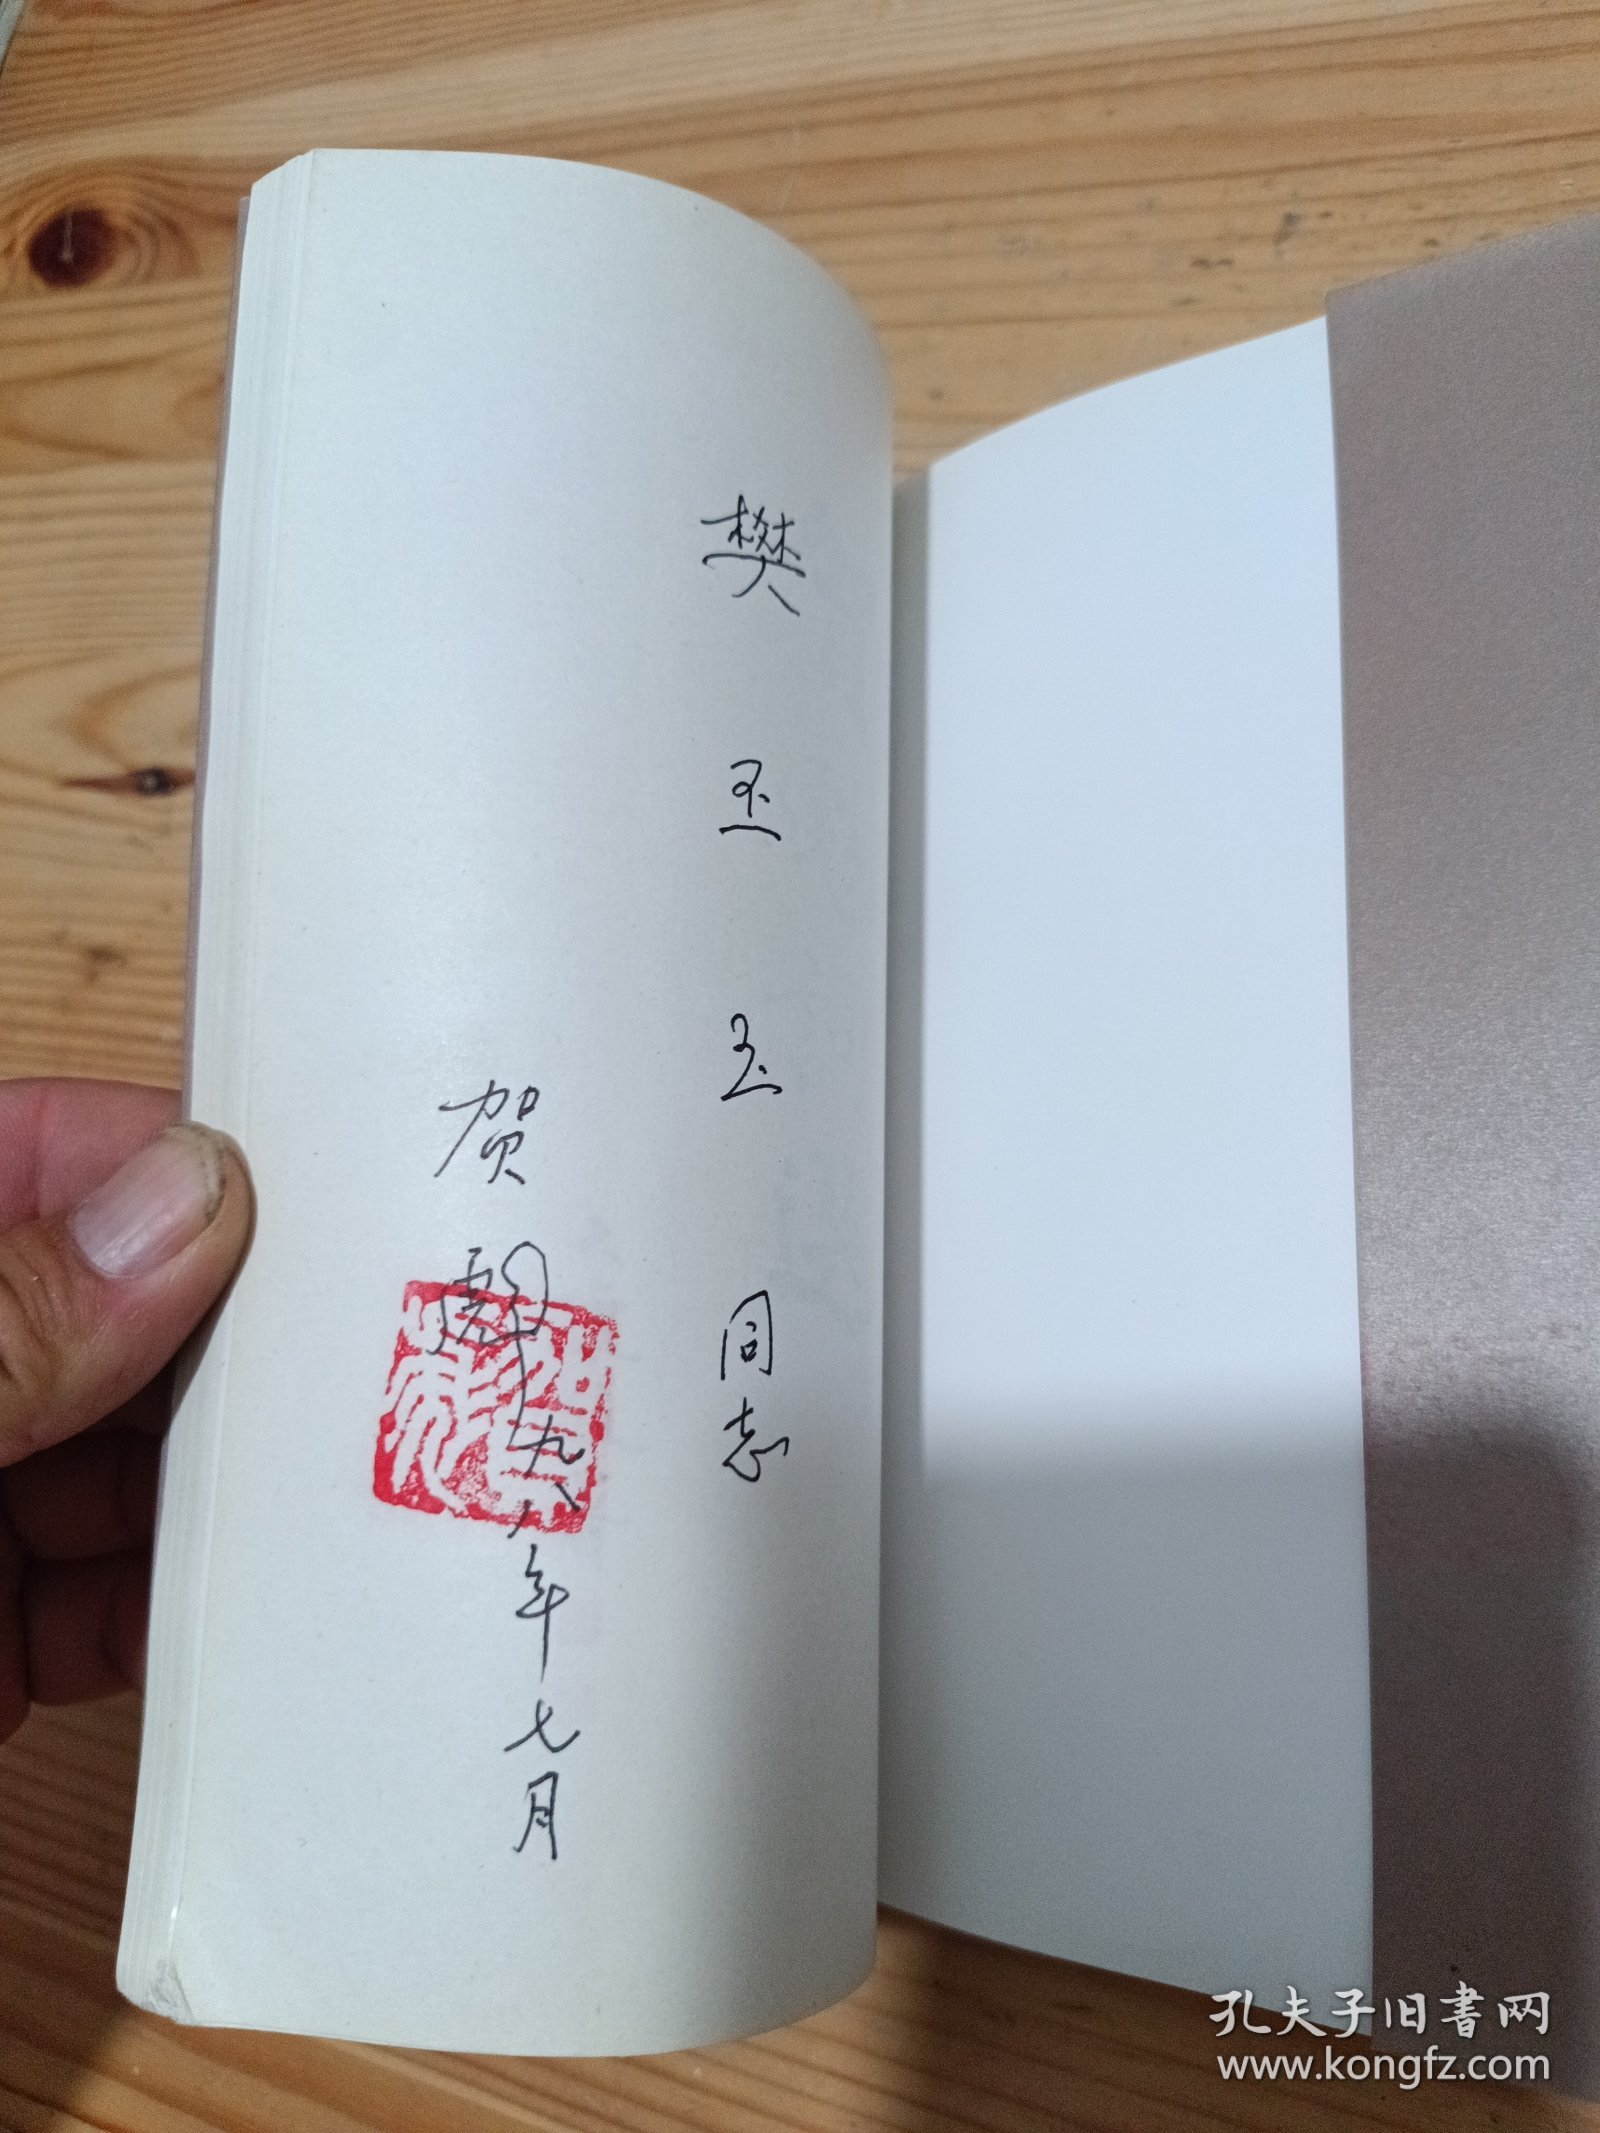 樊玉玉同志
贺
九八年七月
孔夫子旧书网
www.kongfz.com